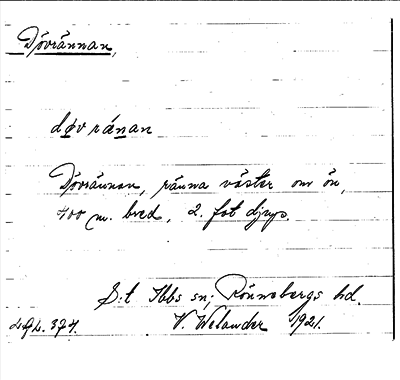 Dövrännan,
døv ränan
Dövrännan, ränna väster om ön,
400 m. bred, 2. fot djup.
S:t Ibbs sn; Rönnebergs hd.
V. Welander 1921.